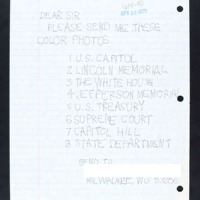 DEAR SIR
PLEASE SEND ME THESE
COLOR PHOTOS
1 U.S. CAPITOL
2 LINCOLN MEMORIAL
3 THE WHITE HOUSE
4 JEFFERSON MEMORIAL
5 U.S. TREASURY
6 SUPREME COURT
7 CAPITOL HILL
8 STATE DEPARTMENT
SEND TO